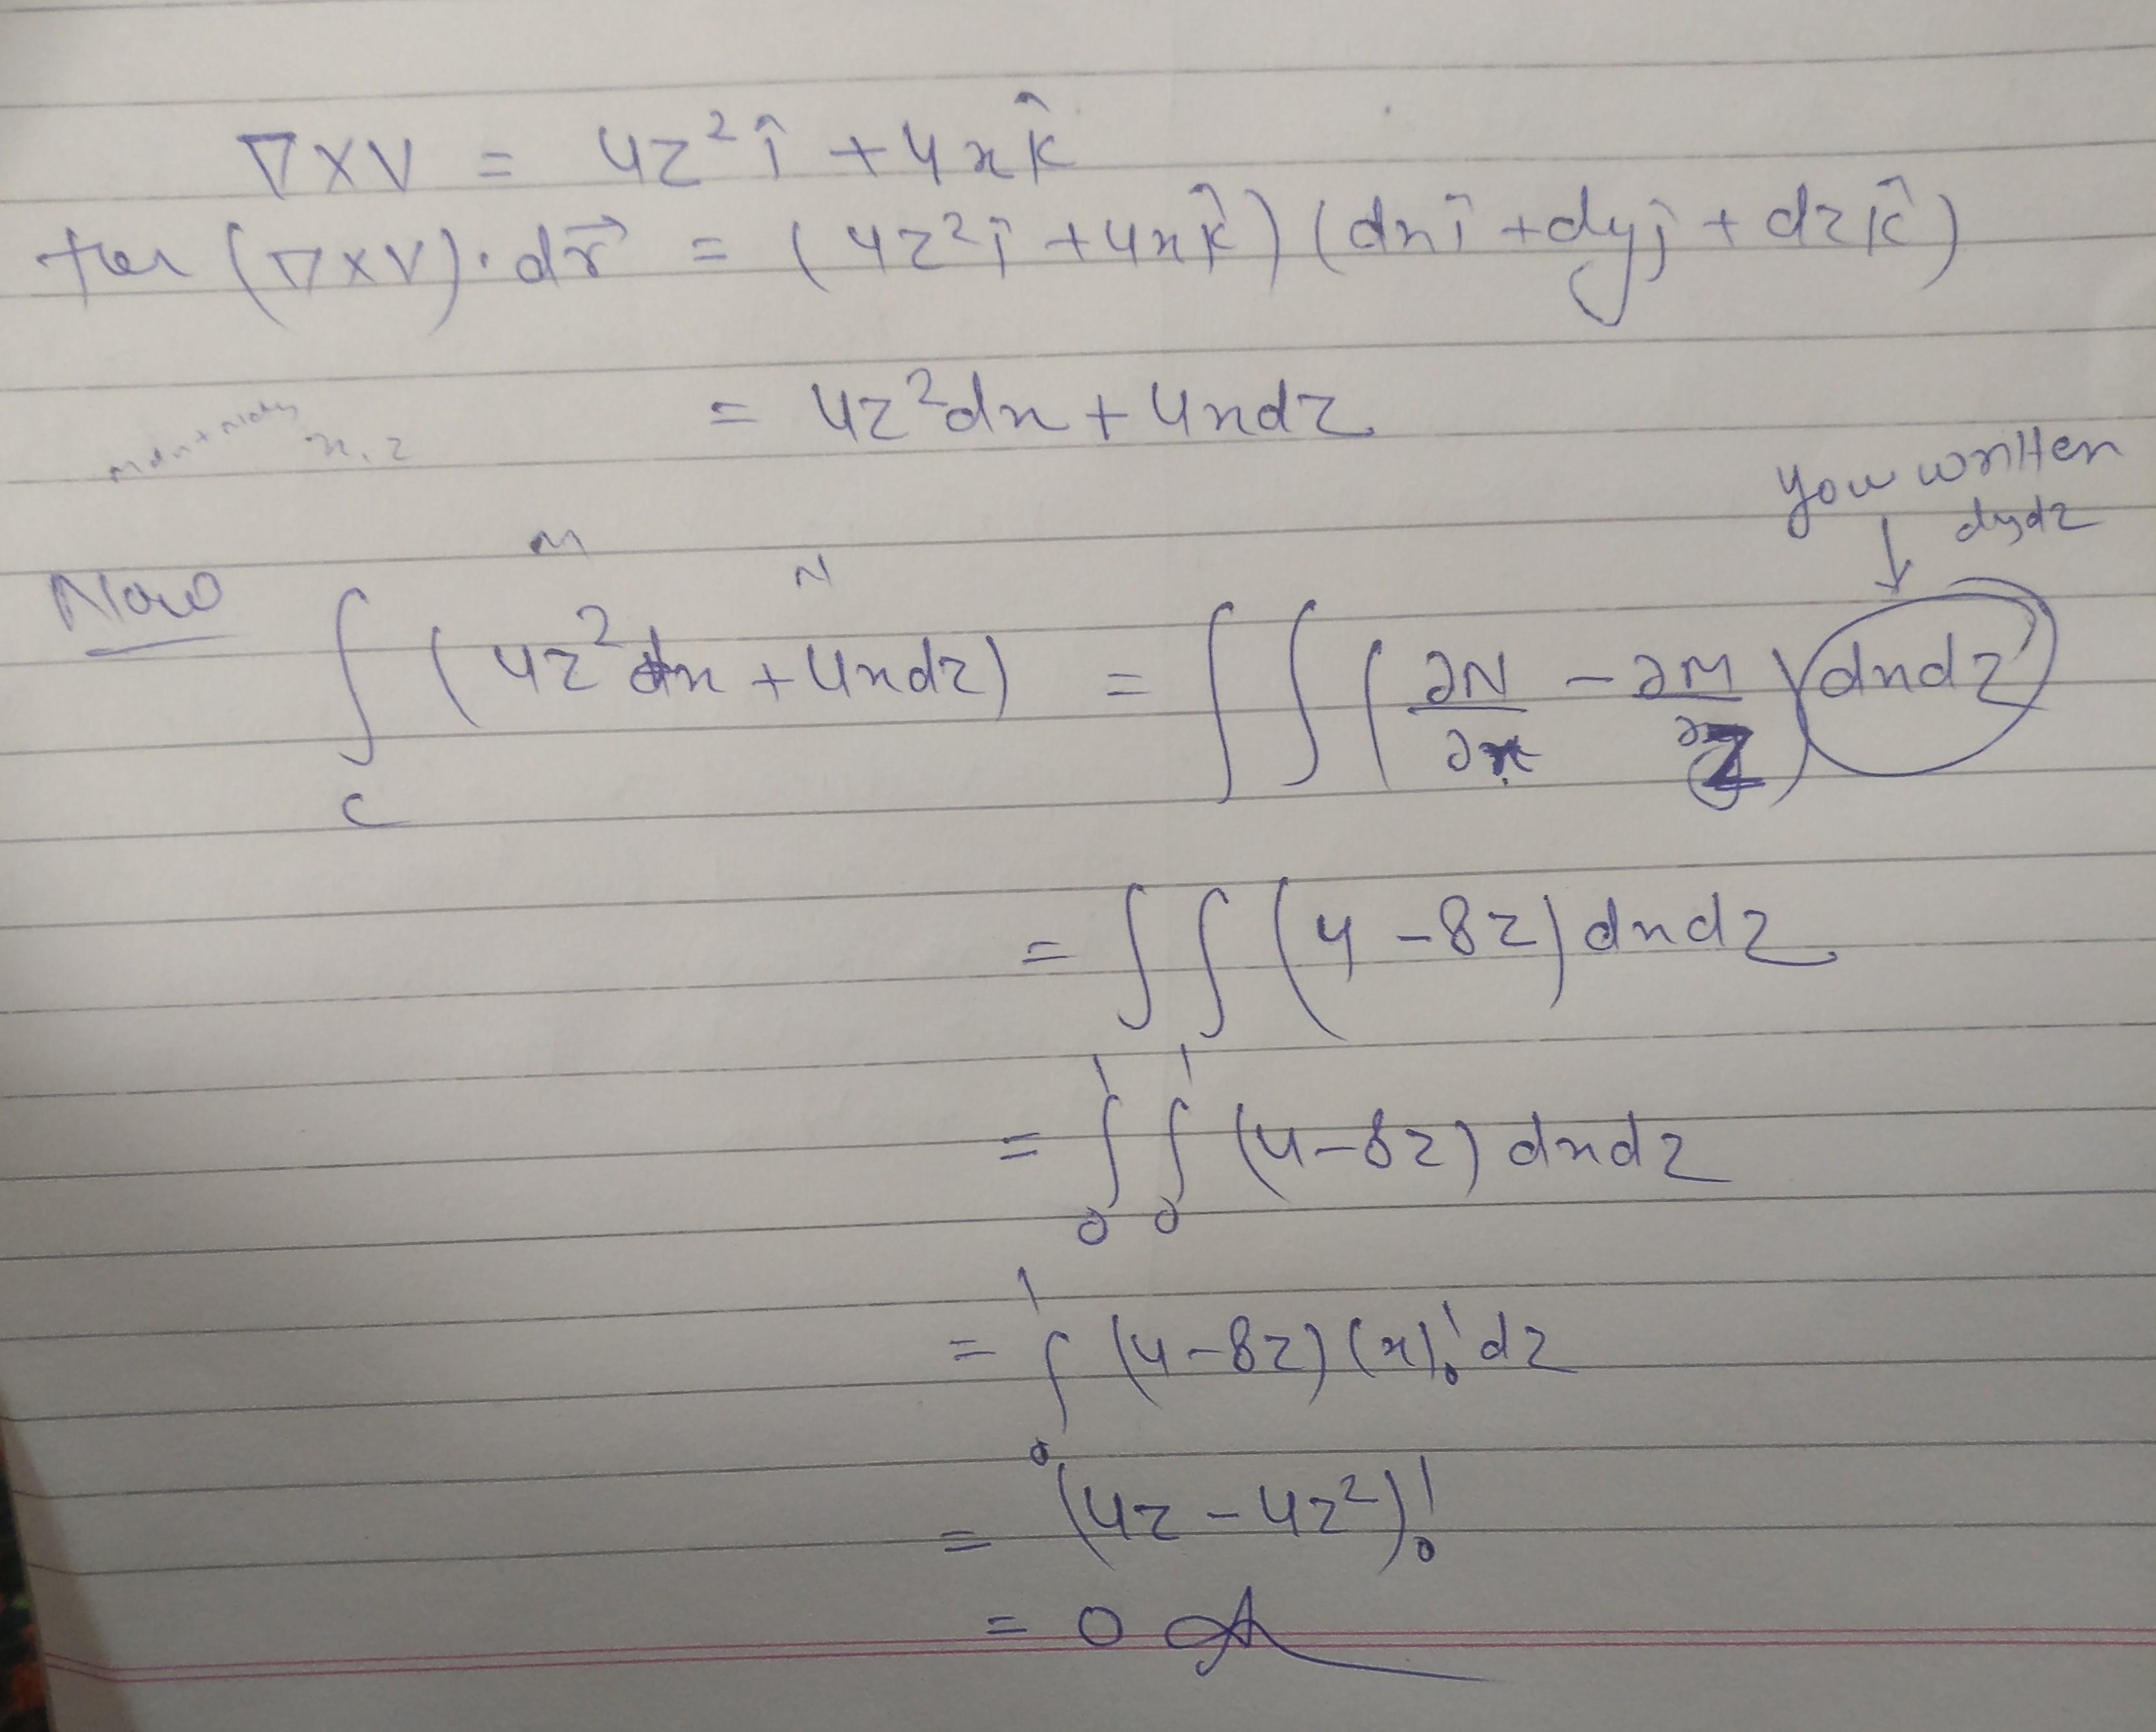 ∇×V = 4z² î + 4x k̂
for (∇×V)·dr⃗ = (4z² î + 4x k̂) (dx î + dy ĵ + dz k̂)
= 4z² dx + 4x dz
x, z
you written
dydz
↓
M N
Now ∫_C (4z² dx + 4x dz) = ∫∫ (∂N/∂x − ∂M/∂z) dx dz
= ∫∫ (4 − 8z) dx dz
= ∫₀¹ ∫₀¹ (4 − 8z) dx dz
= ∫₀¹ (4 − 8z) (x)₀¹ dz
= (4z − 4z²)₀¹
= 0